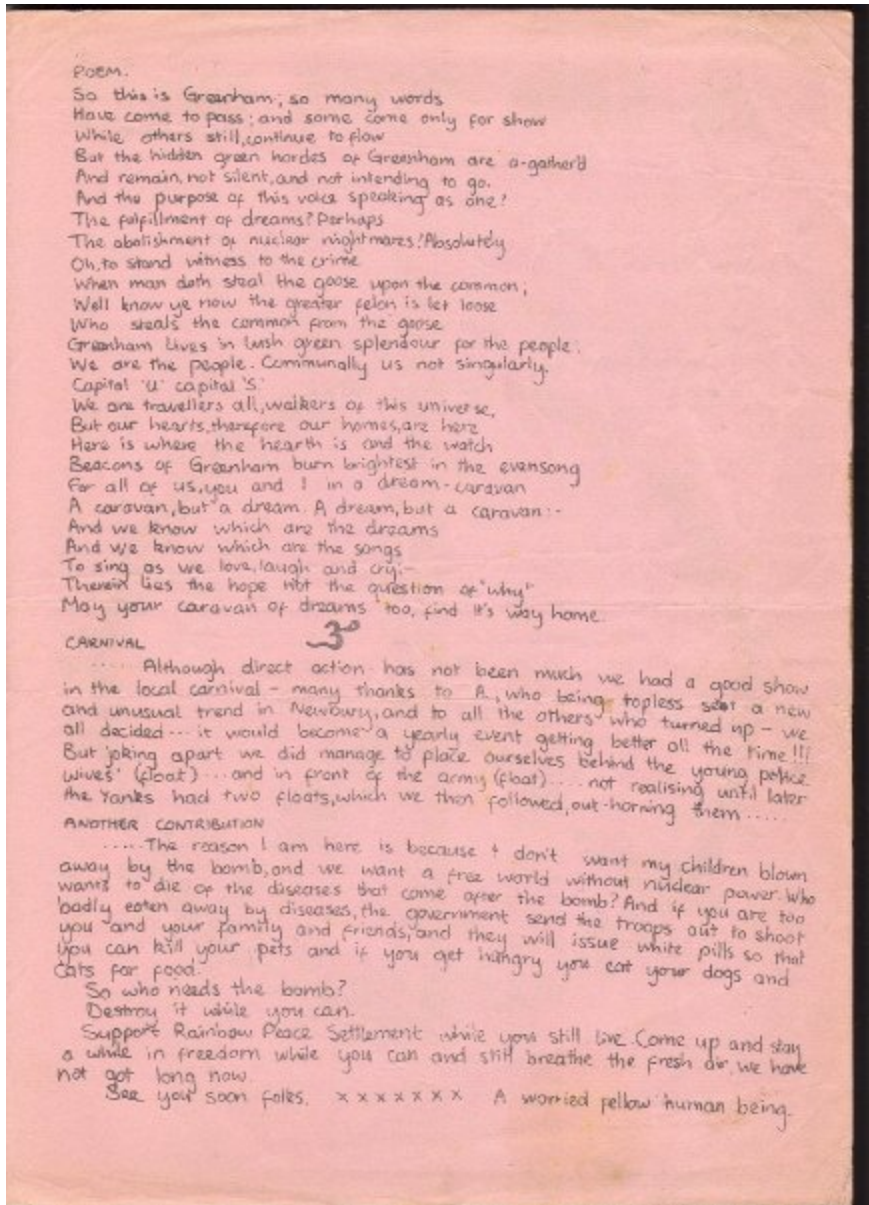 POEM.
So this is Greenham; so many words
Have come to pass; and some come only for show
While others still, continue to flow
But the hidden green hordes of Greenham are a-gather'd
And remain, not silent, and not intending to go.
And the purpose of this voice speaking as one?
The fulfillment of dreams? Perhaps
The abolishment of nuclear nightmares? Absolutely
Oh, to stand witness to the crime
When man doth steal the goose upon the common;
Well know ye now the greater felon is let loose
Who steals the common from the goose
Greenham lives in lush green splendour for the people.
We are the people. Communally us not singularly.
Capital 'U' capital 'S'
We are travellers all, walkers of this universe,
But our hearts, therefore our homes, are here
Here is where the hearth is and the watch
Beacons of Greenham burn brightest in the evensong
For all of us, you and I in a dream-caravan
A caravan, but a dream. A dream, but a caravan:-
And we know which are the dreams
And we know which are the songs
To sing as we love, laugh and cry:-
Therein lies the hope not the question of "why"
May your caravan of dreams too, find it's way home.
CARNIVAL
..... Although direct action has not been much we had a good show
in the local carnival - many thanks to A., who being topless set a new
and unusual trend in Newbury, and to all the others who turned up - we
all decided ... it would become a yearly event getting better all the time!!!
But joking apart we did manage to place ourselves behind the young police
wives' (float) ... and in front of the army (float) .... not realising until later
the Yanks had two floats, which we then followed, out-horning them .....
ANOTHER CONTRIBUTION
..... The reason I am here is because I don't want my children blown
away by the bomb, and we want a free world without nuclear power. Who
wants to die of the diseases that come after the bomb? And if you are too
badly eaten away by diseases, the government send the troops out to shoot
you and your family and friends, and they will issue white pills so that
you can kill your pets and if you get hungry you eat your dogs and
cats for food.
So who needs the bomb?
Destroy it while you can.
Support Rainbow Peace Settlement while you still live. Come up and stay
a while in freedom while you can and still breathe the fresh air, we have
not got long now.
See you soon folks. x x x x x x x A worried fellow human being.